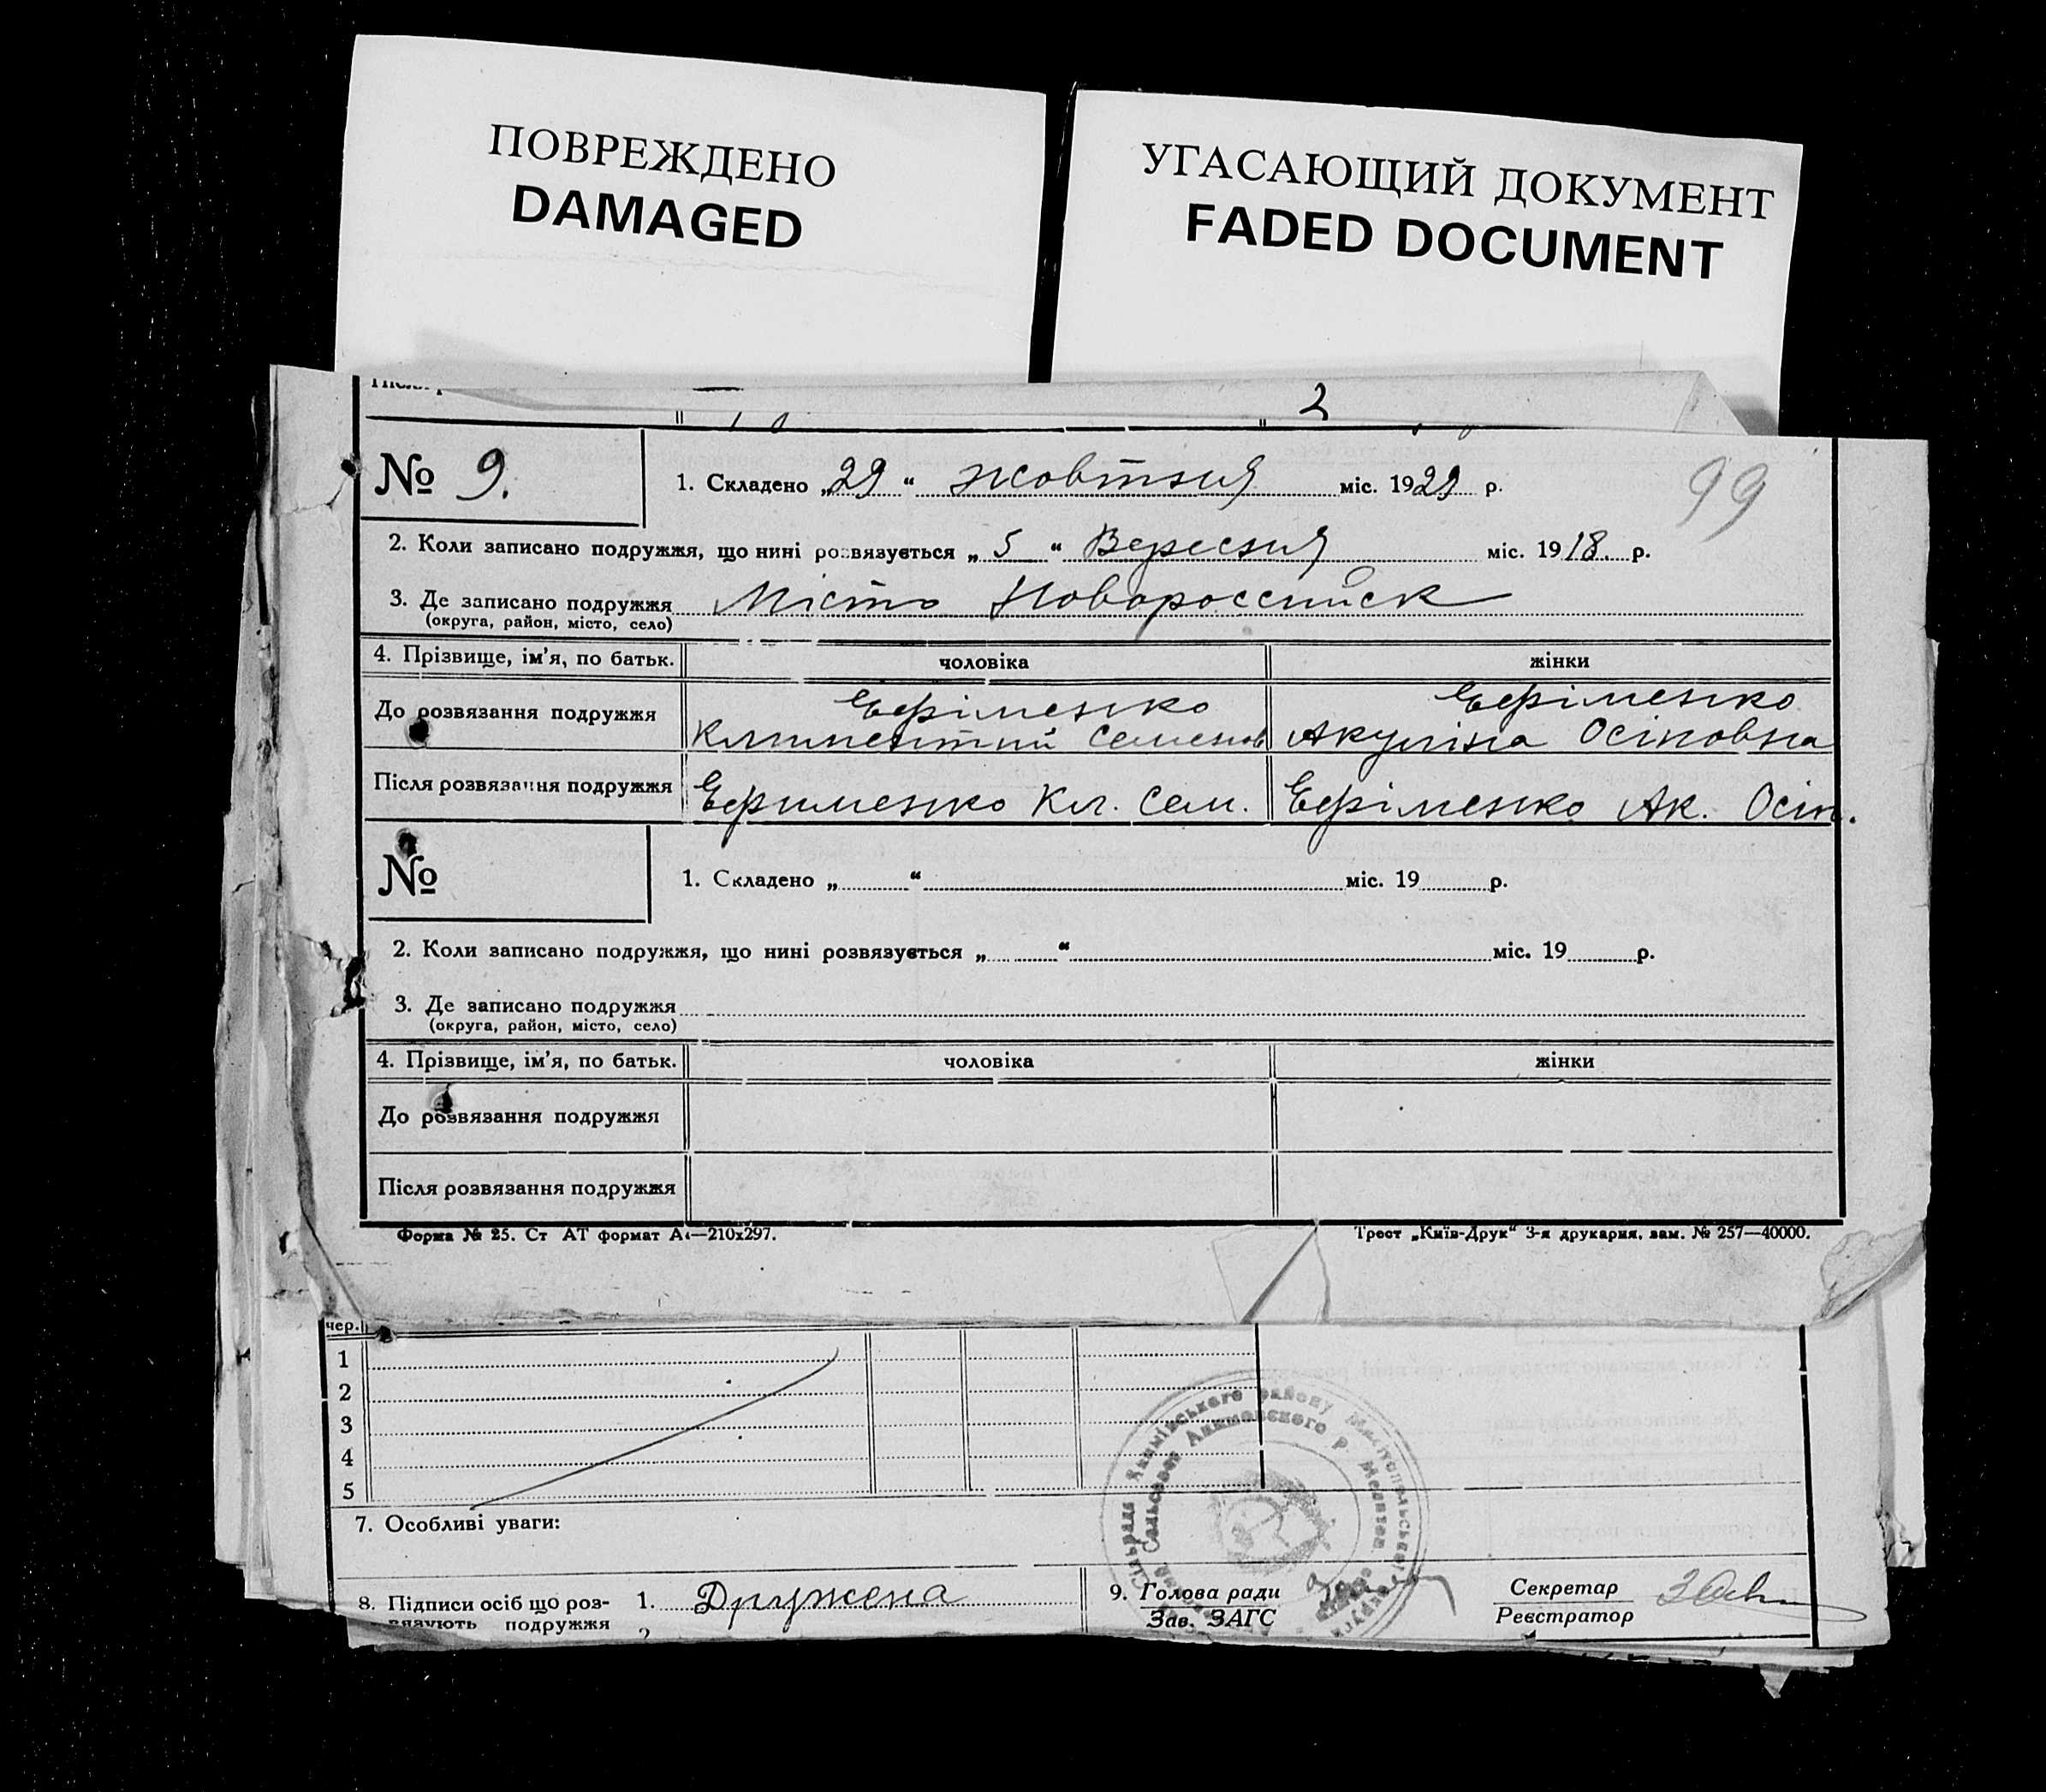 ПОВРЕЖДЕНО
DAMAGED
УГАСАЮЩИЙ ДОКУМЕНТ
FADED DOCUMENT
2
№ 9.
1. Складено „29“ жовтня міс. 1929 р.
99
2. Коли записано подружжя, що нині розвязується „5“ Вересня міс. 1918. р.
3. Де записано подружжя Місто Новороссийск
(округа, район, місто, село)
4. Прізвище, ім’я, по батьк. чоловіка жінки
До розвязання подружжя Єфіменко Климентий Семенов Єфіменко Акуліна Осіповна
Після розвязання подружжя Єфименко Кл. Сем. Єфіменко Ак. Осіп.
№
1. Складено „ “ міс. 19 р.
2. Коли записано подружжя, що нині розвязується „ “ міс. 19 р.
3. Де записано подружжя
(округа, район, місто, село)
4. Прізвище, ім’я, по батьк. чоловіка жінки
До розвязання подружжя
Після розвязання подружжя
Форма № 25. Ст АТ формат А4—210х297. Трест „Київ-Друк“ 3-я друкарня, зам. № 257—40000.
чер.
1
2
3
4
5
7. Особливі уваги:
8. Підписи осіб що роз-
вязують подружжя
1. Дружена
2
9. Голова ради
Зав. ЗАГС
Секретар
Реєстратор
Сільради Якимівського району Мелітопольської округи
Сельсовет Акимовского р. Мелитоп.